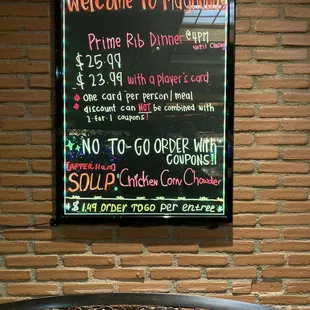 Welcome To
Prime Rib Dinner @4PM
until Close
$25.99
$23.99 with a player's card
* one card per person/meal
* discount can NOT be combined with
2-for-1 coupons!
*NO TO-GO ORDER with
COUPONS!!
[AFTER 4PM]
SOUP Chicken Corn Chowder
*$1.49 ORDER TOGO per entree*